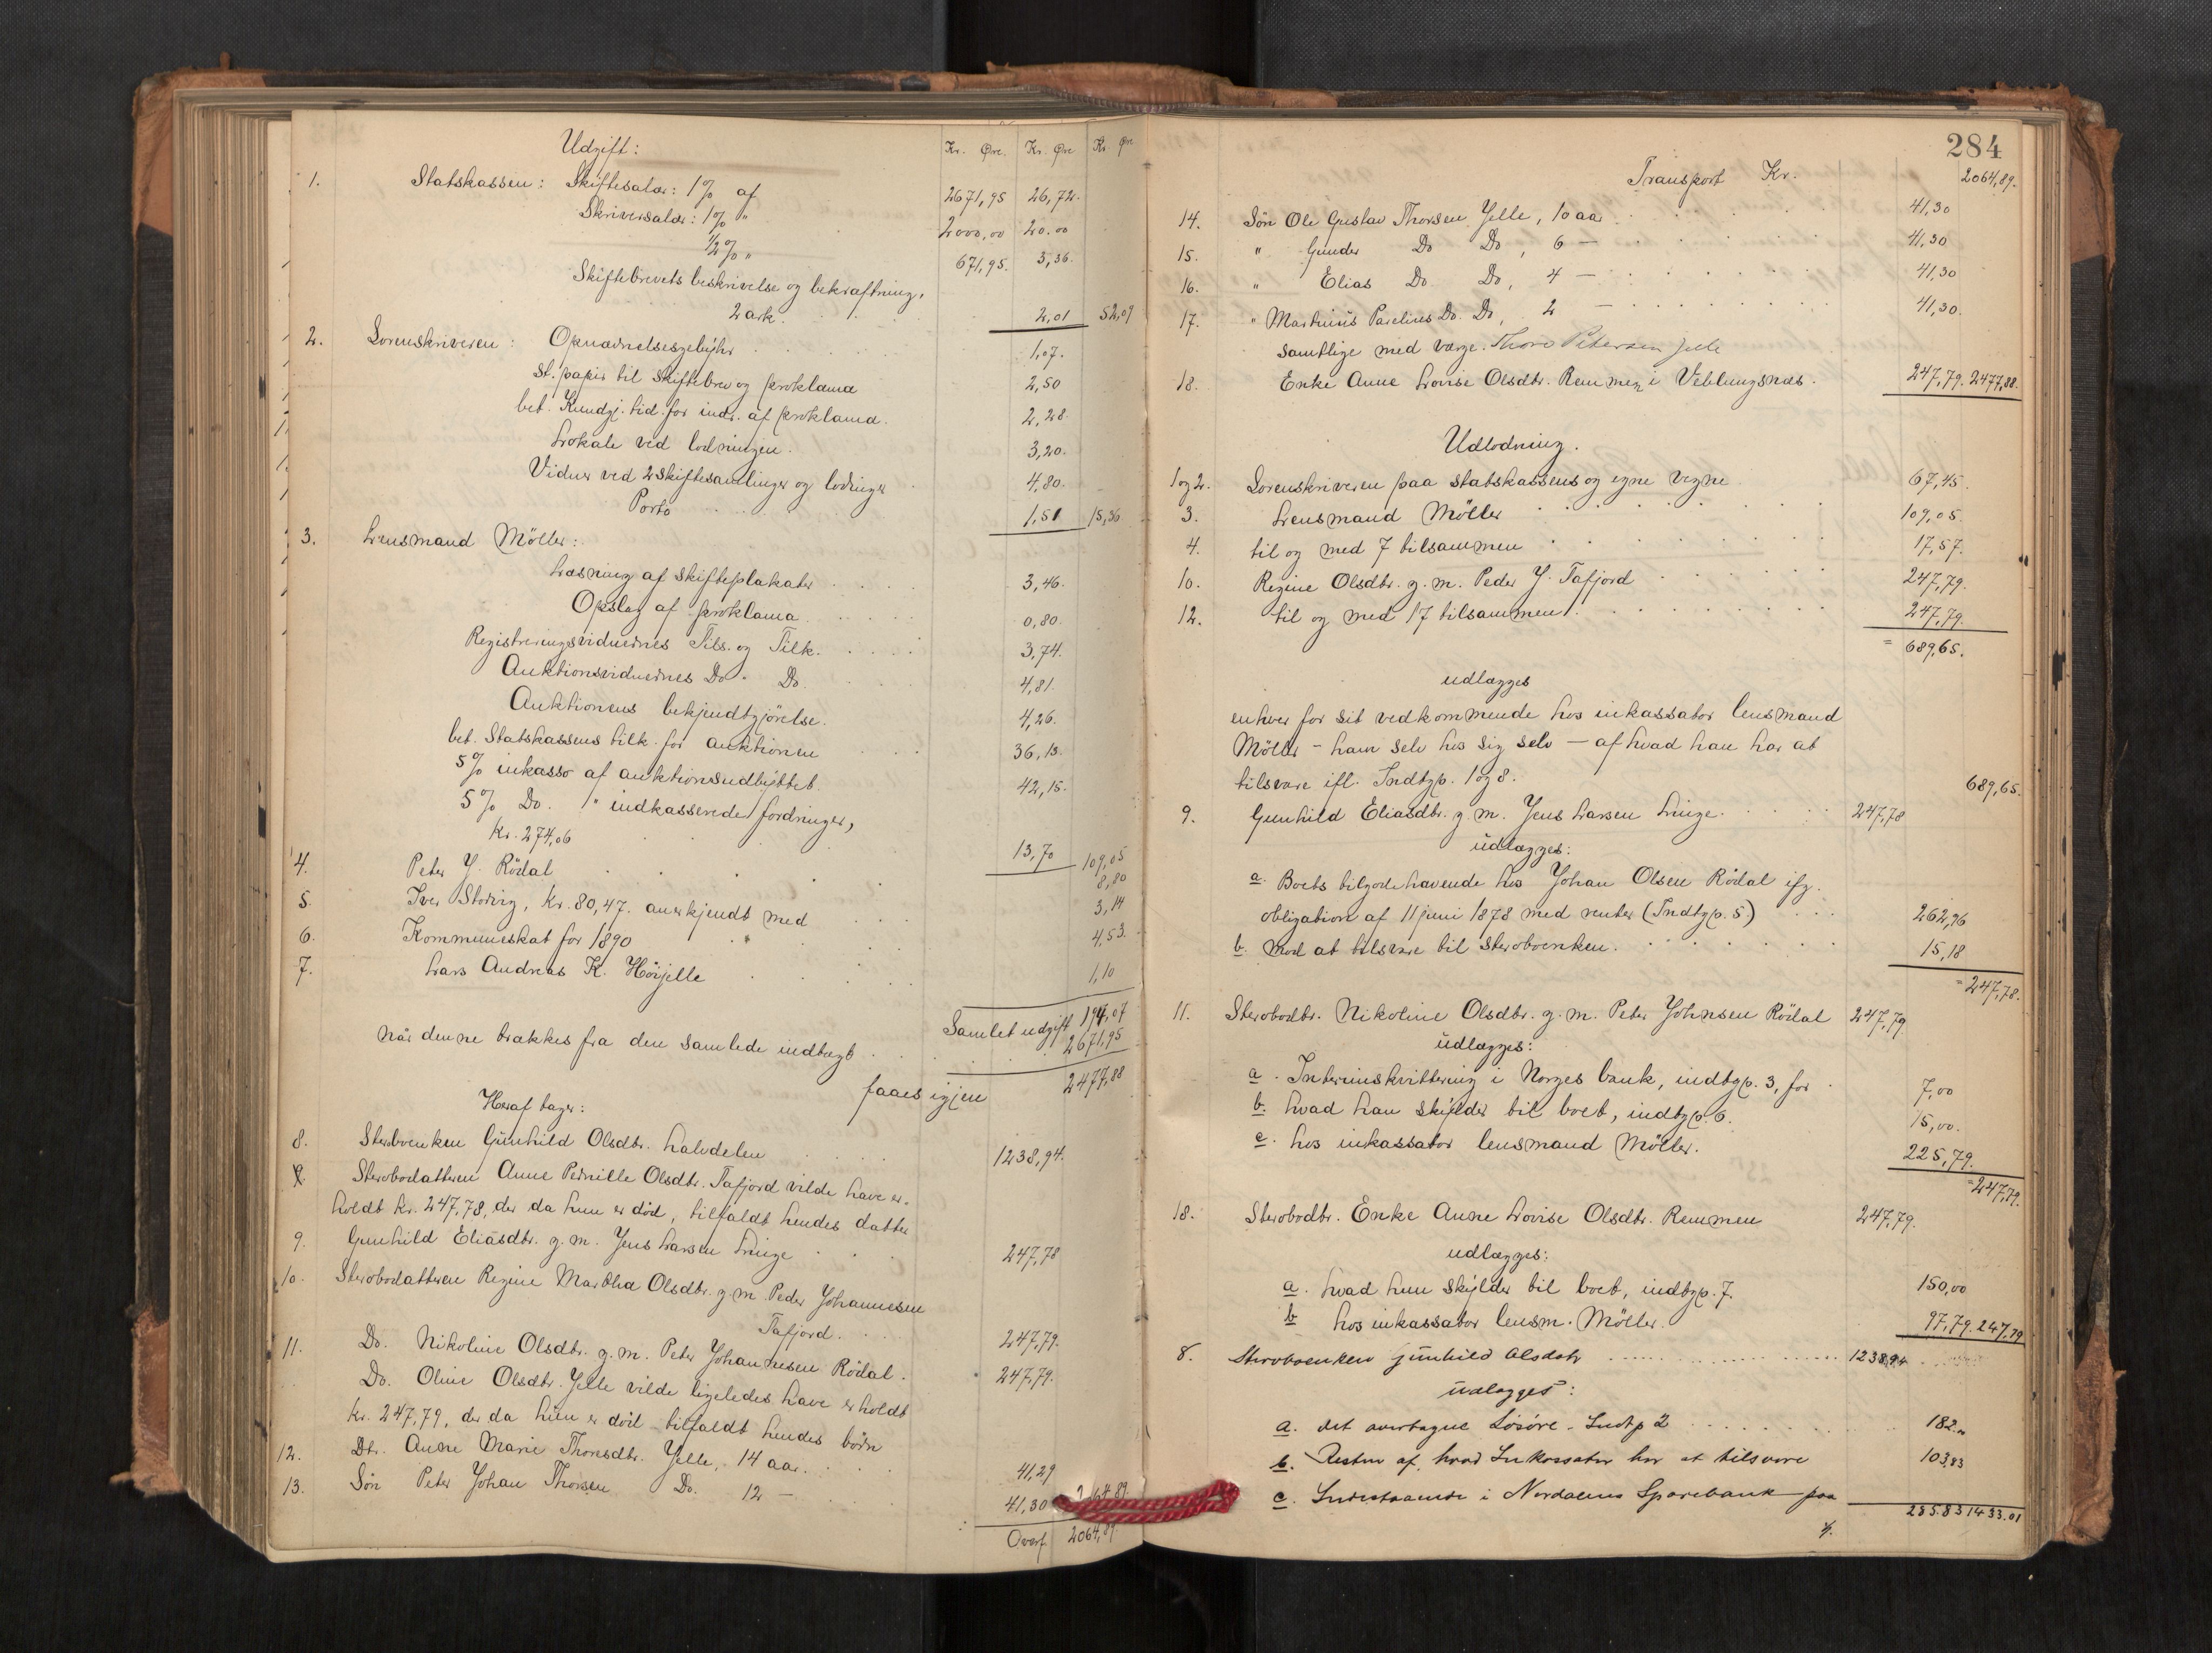 Udgift:
Kr. Øre. Kr. Øre Kr Øre
1. Statskassen: Skiftesalær: 1% af 2671,95 26,72.
Skriversalær: 1% " 2000,00 20.00
1/2% " 671,95. 3,36.
Skiftebrevets beskrivelse og bekræftning,
2 ark. 2,01 52,09
2. Sorenskriveren: Opnævnelsesgebyhr 1,07.
St. papir til skiftebrev og proklama 2,50
bet. Kundgj. tid. for indr. af proklama. 2,28.
Lokale ved lodningen. 3,20.
Vidner ved 2 skiftesamlinger og lodninger 4,80.
Porto 1,51 15,36
3. Lensmand Möller:
Læsning af skifteplakater 3,46.
Opslag af proklama 0,80.
Registreringsvidnernes Tils. og Tilk. 3,74.
Auktionsvidnernes Do. Do. 4,81.
Auktionens bekjendtgjörelse. 4,26.
bet. Statskassens tilk. for auktionen 36,13.
5% inkasso af auktionsudbyttet. 42,15.
5% Do. " indkasserede fordringer,
Kr. 274,06 13,70 109,05
4. Peter J. Rödal 8,80
5. Iver Storvig, Kr. 80,47. anerkjendt med 3,14
6. Kommuneskat for 1890 4,53.
7. Lars Andreas K. Höijelle 1,10
Samlet udgift 194,07
Når denne trækkes fra den samlede indtægt 2671,95
faaes igjen 2477,88
Heraf tager:
8. Stervboenken Günhild Olsdtr. halvdelen 1238,94.
Stervbodatteren Anne Pernille Olsdtr. Tafjord vilde have er-
holdt Kr. 247,78, der da hun er död, tilfaldt hendes datter
9. Gunhild Eliasdtr. g. m. Jens Larsen Linge 247,78
10. Stervbodatteren Regine Martha Olsdtr. g. m. Peder Johannesen
Tafjord. 247,79.
11. Do. Nikoline Olsdtr. g. m. Peter Johannesen Rödal. 247,79.
Do. Oline Olsdtr. Jelle vilde ligeledes have erholdt
Kr. 247,79, der da hün er död tilfaldt hendes börn
12. Dtr. Anne Marie Thorsdtr. Jelle, 14 aar. 41,29
13. Sön Peter Johan Thorsen Do. 12 — 41,30 2064,89
Overf. 2064,89
284
Transport Kr. 2064,89.
14. Sön Ole Gustav Thorsen Jelle, 10 aar 41,30
15. " Gunder Do Do, 6 — 41,30
16. " Elias Do. Do, 4 — 41,30
17. " Martinus Parelius Do. Do, 2 — 41,30.
samtlige med værge. Thore Petersen Jelle
18. Enke Anne Lovise Olsdtr. Remmen i Veblungsnæs. 247,79. 2477,88.
Udlodning.
1 og 2. Sorenskriveren paa statskassens og egne vegne 67,45.
3. Lensmand Möller 109,05.
4. til og med 7 tilsammen 17,57.
10. Regine Olsdtr. g. m. Peder J. Tafjord 247,79.
12. til og med 17 tilsammen 247,79.
= 689,65.
udlægges
enhver for sit vedkommende hos inkassator lensmand
Möller - ham selv hos sig selv — af hvad han har at
tilsvare ifl. Indtgp. 1 og 8. 689,65.
9. Gunhild Eliasdtr. g. m. Jens Larsen Linge. 247,78
udlægges:
a. Boets tilgodehavende hos Johan Olsen Rödal ifg.
obligation af 11 juni 1878 med renter (Indtgp. 5.) 262,96
b. mod at tilsvare til stervboenken. 15,18
= 247,78.
11. Stervbodtr. Nikoline Olsdtr. g. m. Peter Johnsen Rödal 247,79
udlægges:
a. Interimskvittering i Norges bank, indtgp. 3, for 7,00
b. hvad han skylder til boet, indtgp. 6. 15,00.
c. hos inkassator lensmand Möller. 225,79.
= 247,79.
18. Stervbodtr. Enke Anne Lovise Olsdtr. Remmen 247,79.
udlægges:
a. hvad hun skylder til boet, indtgp. 7. 150,00
b hos inkassator lensm. Möller. 97,79. 247,79
8. Stervboenken Günhild Olsdatr 1238,94
udlægges:
a. det overtagne Lösöre - Indtp 2 182.„
b. Resten af, hvad Inkassator har at tilsvare 103,83
c. Indestaaende i Nordalens Sparebank paa
285.83 1433.01